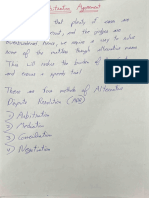 Arbitration Agreement
that plenty of cases are
, and the judges are
, we require a way to solve
some of the matters through alternative means.
This will reduce the burden of the
and ensures a speedy trial.
There are four methods of Alternative
Dispute Resolution (ADR)
1) Arbitration
2) Mediation
3) Conciliation
4) Negotiation